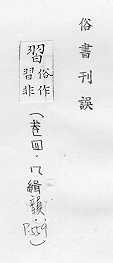 俗書刊誤
習
俗作
習非
(卷四·入緝韻
P.559)